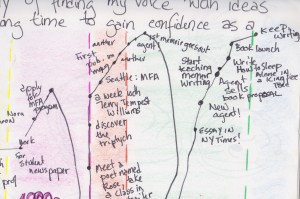 of finding my voice with ideas
ong time to gain confidence as a
KEEP
WRITING
Book
launch
First
pub. in
another
another
agent!
1st memoir
Start
teaching
memoir
writing
Write
How to Sleep
Alone in
a King-Size
Agent
sells
book proposal
New
agent!
ESSAY IN
NY Times!
Seattle: MFA
a week with
Terry Tempest
Williams
discover
the
triptych
Meet a
poet named
Rose, take
a class in
apply for
MFA
program
Work
for
student
newspaper
prof